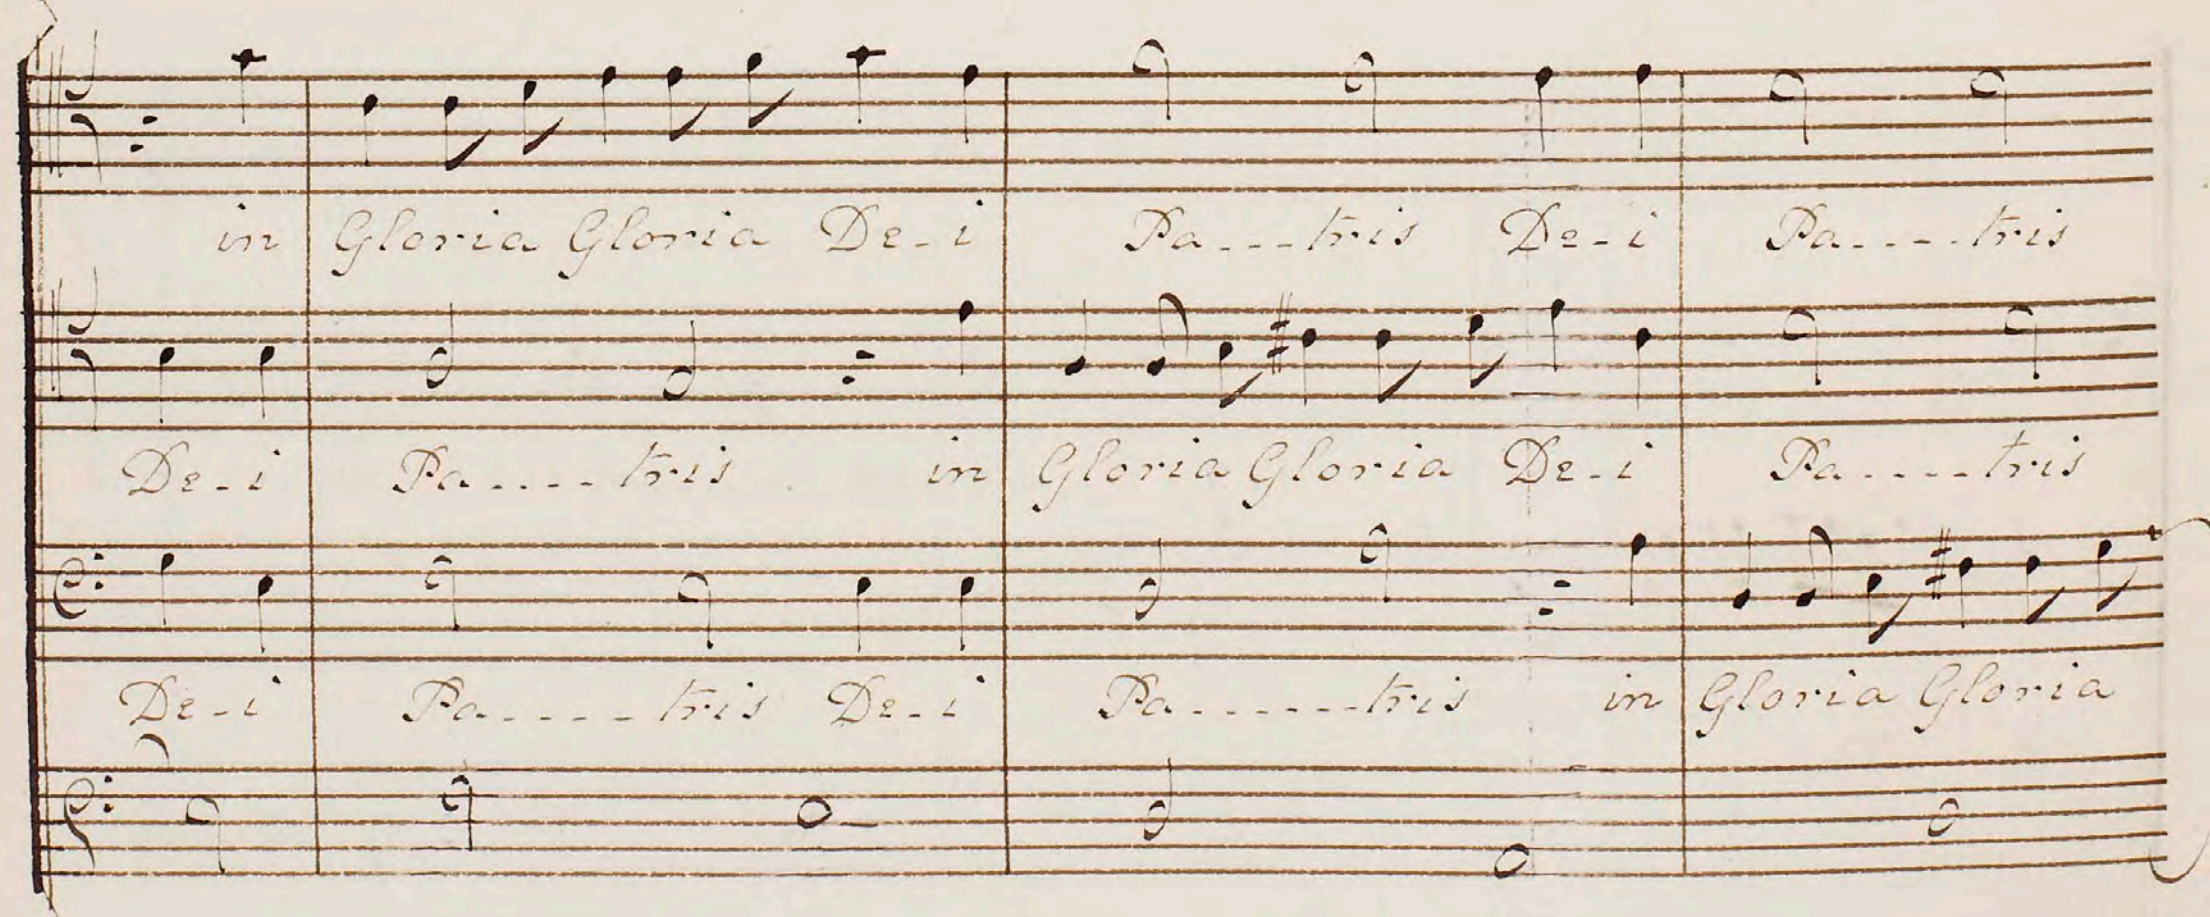 in Gloria Gloria De-i Pa---tris De-i Pa----tris
De-i Pa----tris in Gloria Gloria De-i Pa----tris
De-i Pa-----tris De-i Pa-------tris in Gloria Gloria